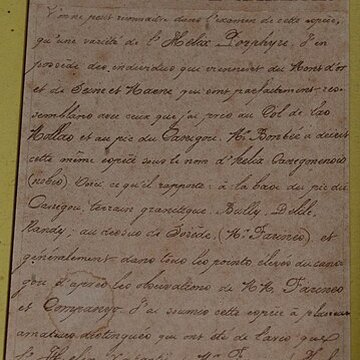 on ne peut reconnaître dans l'examen de cette espèce,
qu'une variété de l'Helix Porphyre. J'en
possède des individus qui viennent du Mont d'or
et de Seine et Marne qui sont parfaitement res-
semblans avec ceux que j'ai pris au Col de las
Mollas et au pic du Canegou. Mr Bonbée a décrit
cette même espèce sous le nom d'Helix Canegonensis
(nobis). Voici ce qu'il rapporte: à la base du pic du
Canegou, terrain granitique. Bully,
Randy; au dessus de Sorède, (Mr Farines), et
généralement dans tous les points élevés du cani-
gou d'après les observations de M.M. Farines
et Companyo. J'ai soumis cette espèce à plusieurs
amateurs distingués qui ont été de l'avis que
Helix